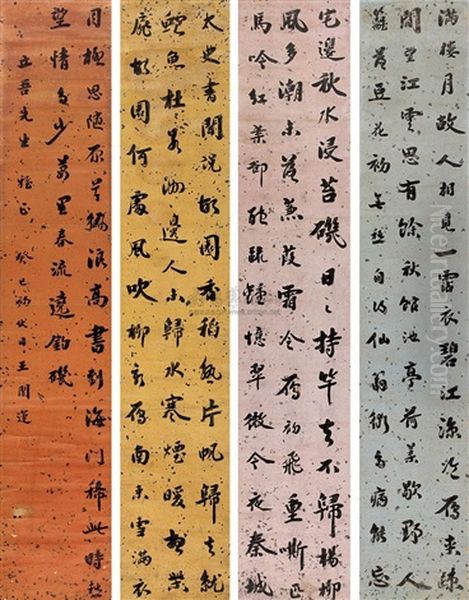 滿樓月故人相見一霑衣碧江涼冷雁來疎
閒望江雲思有餘秋館池亭荷葉歇野人
籬落豆花初無愁自得仙翁術多病能忘
宅邊秋水浸苔磯日々持竿去不歸楊柳
風多潮未落蒹葭霜冷雁初飛重嘶匹
馬吟紅葉卻聽疏鐘憶翠微今夜秦城
太史書聞說故園香稻熟片帆歸去就
鱸魚杜若洲邊人未歸水寒煙暖想柴
扉故園何處風吹柳新雁南來雪滿衣
目極思隨原草徧浪高書到海門稀此時愁
望情多少萬里春流遶釣磯
立吾先生雅正 癸巳初伏日王闓運